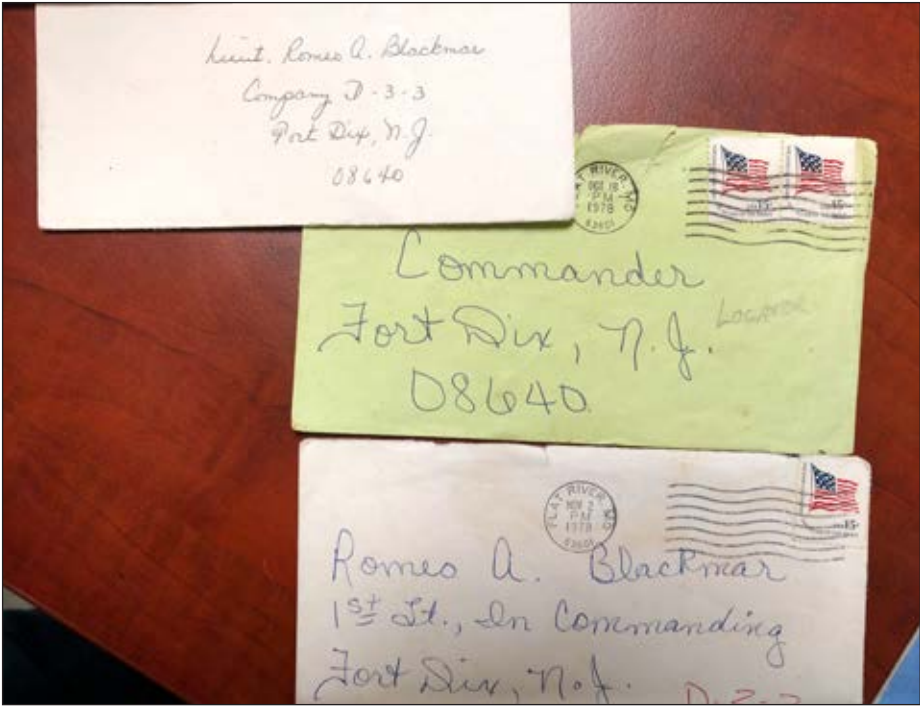 Lieut. Romeo A. Blackmar
Company D-3-3
Fort Dix, N.J.
08640
FLAT RIVER, MO
OCT 18
PM
1978
63601
15¢
15¢
Commander
Fort Dix, N.J.
LOCATOR
08640
FLAT RIVER, MO
NOV 2
PM
1978
63601
15¢
Romeo A. Blackmar
1st Lt., In Commanding
Fort Dix, N.J.